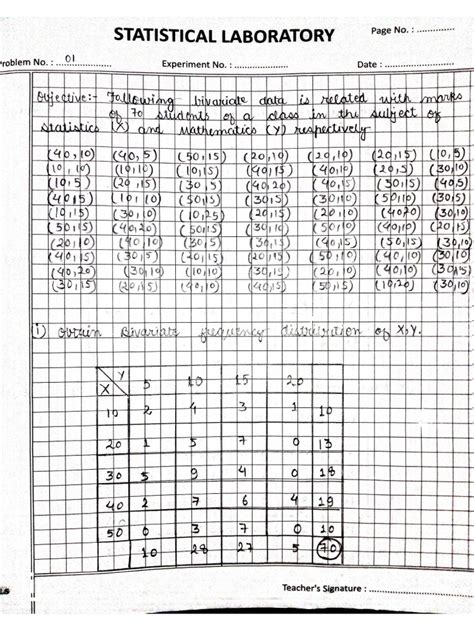 STATISTICAL LABORATORY
Page No. : ..............
Problem No. : 01
Experiment No. : ..............
Date : ..............
Objective:- Following bivariate data is related with marks
of 70 students of a class in the subject of
Statistics (X) and Mathematics (Y) respectively
(40,10) (40,5) (50,15) (20,10) (20,10) (20,15) (10,5)
(10,10) (10,10) (10,15) (40,15) (40,10) (20,5) (30,10)
(10,5) (20,15) (30,5) (40,20) (40,15) (30,15) (40,5)
(40,15) (10,10) (50,15) (30,5) (30,10) (50,10) (30,5)
(10,15) (30,10) (10,25) (20,15) (20,10) (40,20) (30,10)
(50,15) (40,20) (50,15) (30,10) (50,10) (40,10) (20,15)
(20,10) (40,10) (30,5) (30,15) (40,15) (50,15) (30,10)
(40,15) (30,5) (20,15) (20,15) (50,10) (40,10) (30,10)
(40,20) (30,10) (10,10) (30,15) (20,10) (40,10) (30,5)
(30,15) (20,15) (40,10) (40,15) (50,15) (10,20) (30,10)
i) Obtain Bivariate frequency distribution of X,Y.
X Y 5 10 15 20
10 2 4 3 1 10
20 1 5 7 0 13
30 5 9 4 0 18
40 2 7 6 4 19
50 0 3 7 0 10
10 28 27 5 70
Teacher's Signature : ..............